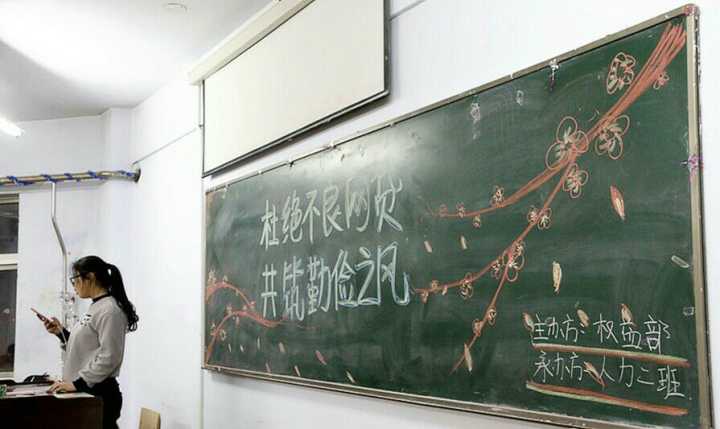 杜绝不良网贷
共筑勤俭之风
主办方:权益部
承办方:人力二班